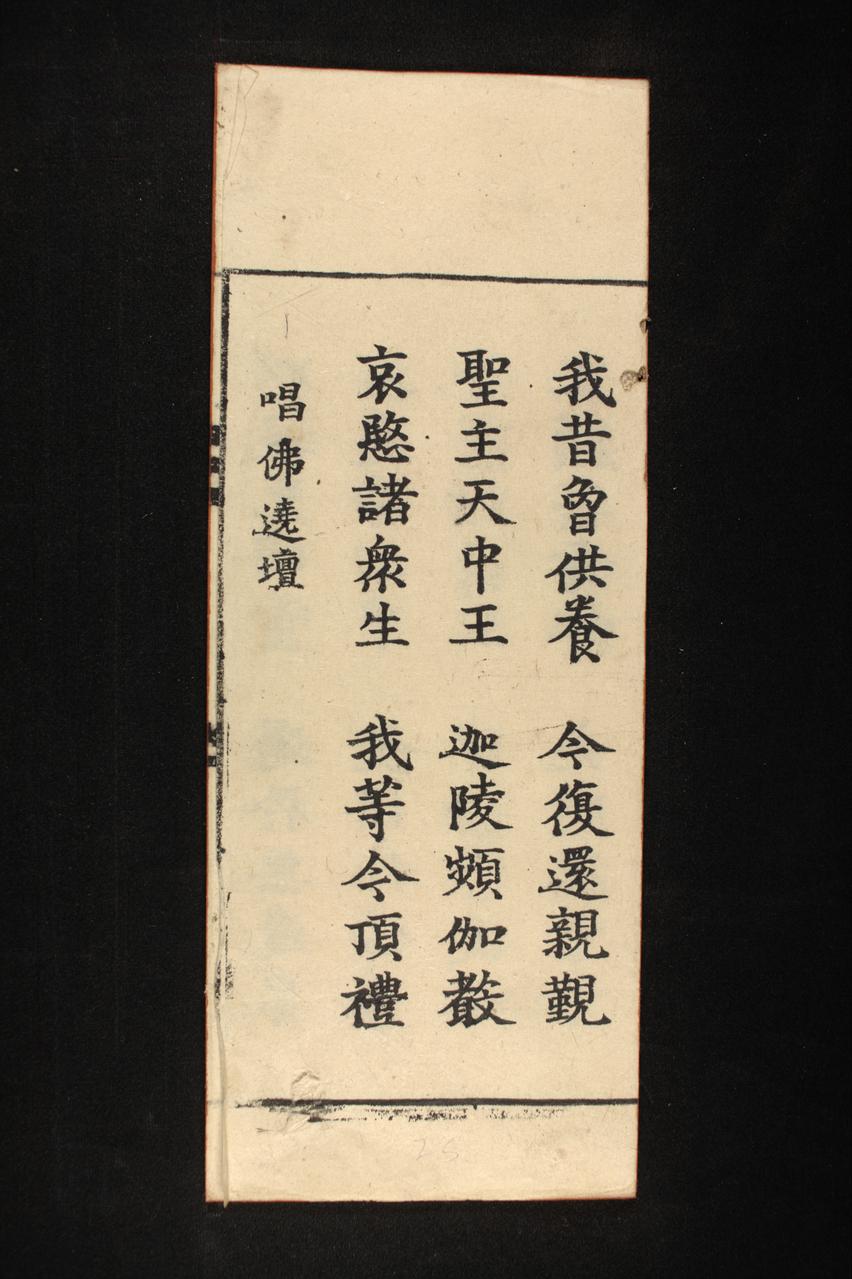 我昔曾供養　今復還親覲
聖主天中王　迦陵頻伽聲
哀愍諸衆生　我等今頂禮
唱佛遶壇